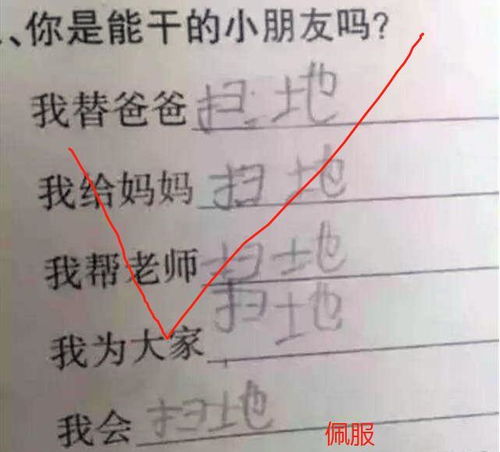 、你是能干的小朋友吗?
我替爸爸扫地
我给妈妈扫地
我帮老师扫地
我为大家扫地
我会扫地
佩服